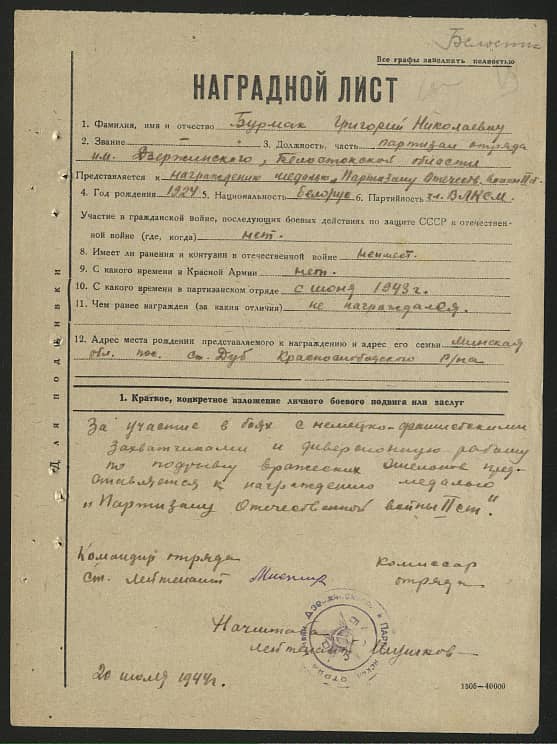 Белосток
Все графы заполнить полностью
НАГРАДНОЙ ЛИСТ
1. Фамилия, имя и отчество Бурмак Григорий Николаевич
2. Звание — 3. Должность, часть партизан отряда
им. Дзержинского, Белостокской области
Представляется к награждению медалью „Партизану Отечеств. войны II ст.
4. Год рождения 1924 5. Национальность белорус 6. Партийность чл. ВЛКСМ
Участие в гражданской войне, последующих боевых действиях по защите СССР и отечествен-
ной войне (где, когда) нет.
8. Имеет ли ранения и контузии в отечественной войне неимеет.
9. С какого времени в Красной Армии нет.
10. С какого времени в партизанском отряде с июня 1943 г.
11. Чем ранее награжден (за какие отличия) не награждался.
12. Адрес места рождения представляемого к награждению и адрес его семьи Минская
обл. пос. Ст. Дуб Краснослободского р/на
Для подшивки
1. Краткое, конкретное изложение личного боевого подвига или заслуг
За участие в боях с немецко-фашистскими
захватчиками и диверсионную работу
по подрыву вражеских эшелонов пред-
ставляется к награждению медалью
„Партизану Отечественной войны II ст."
Командир отряда
ст. лейтенант
комиссар
отряда
Начштаба
лейтенант
20 июля 1944 г.
1506—40000